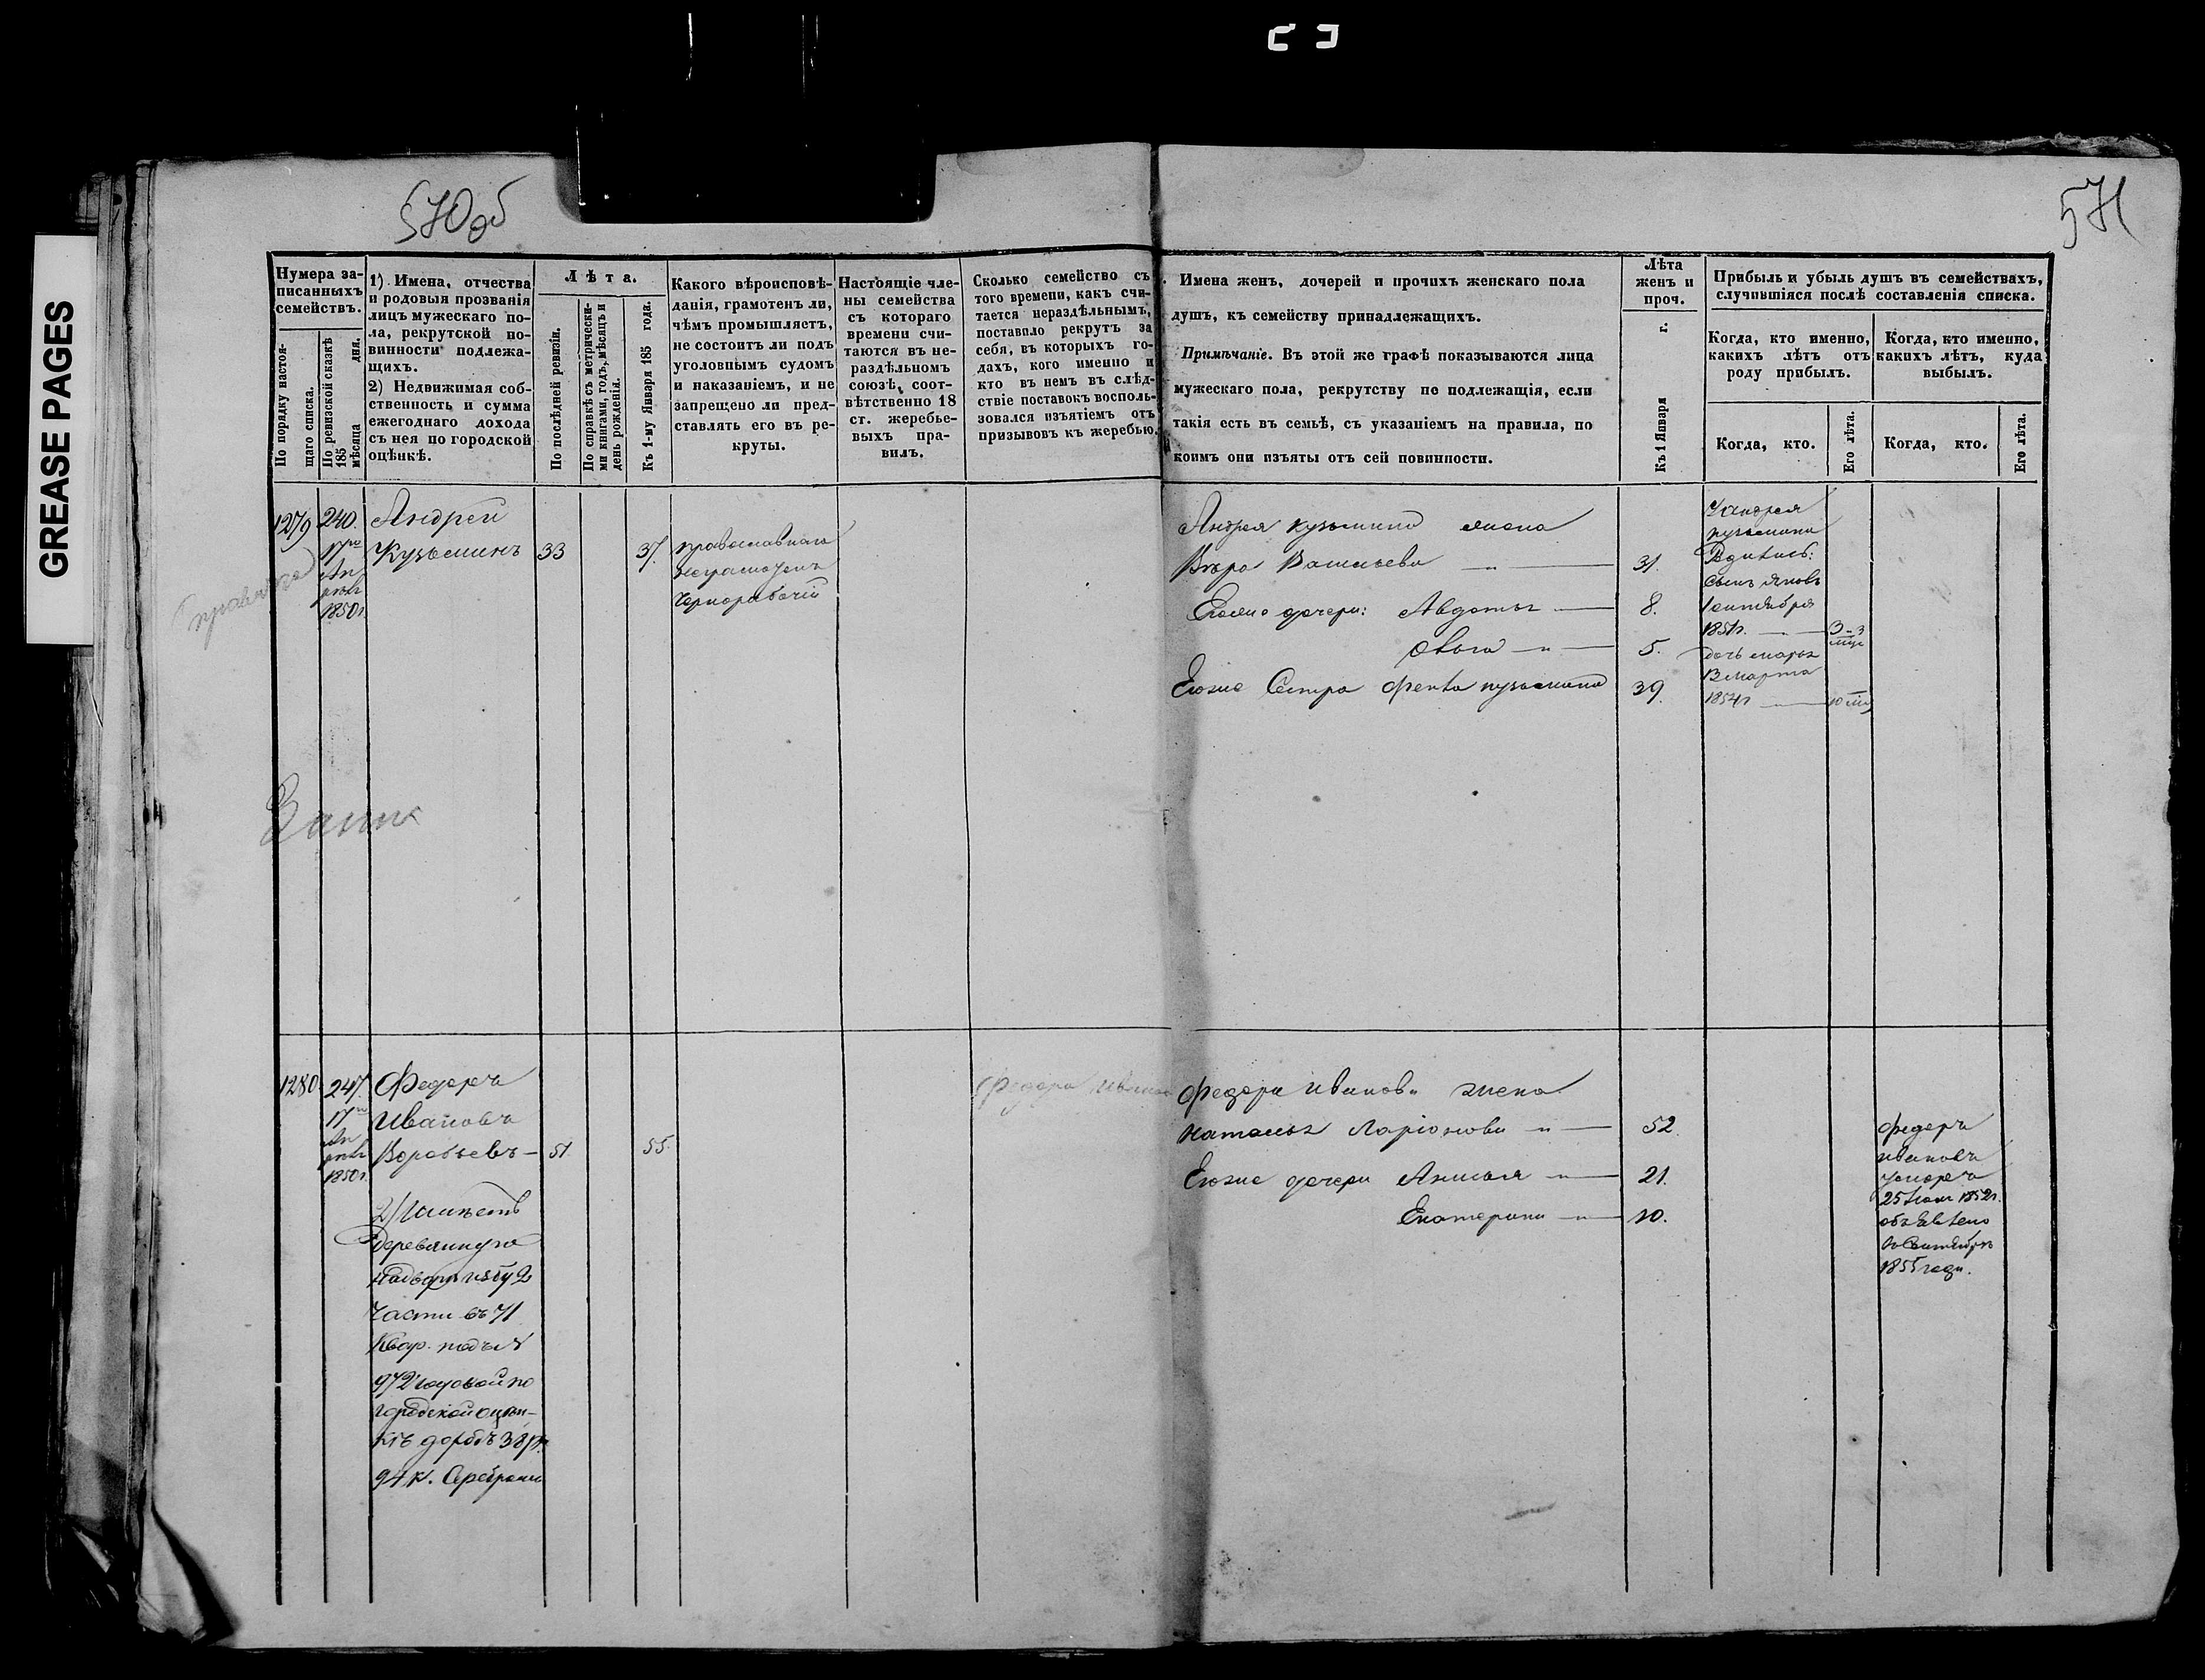 GREASE PAGES
570 об
571
Нумера за-
писанныхъ
семействъ.
По порядку настоя-
щаго списка.
По ревизской сказкѣ
185 дня.
мѣсяца
1) Имена, отчества
и родовыя прозванія
лицъ мужескаго по-
ла, рекрутской по-
винности подлежа-
щихъ.
2) Недвижимая соб-
ственность и сумма
ежегоднаго дохода
съ нея по городской
оцѣнкѣ.
Лѣта.
По послѣдней ревизіи.
По справкѣ съ метрически-
ми книгами, годъ, мѣсяцъ и
день рожденія.
Къ 1-му Января 185 года.
Какого вѣроисповѣ-
данія, грамотенъ ли,
чѣмъ промышляетъ,
не состоитъ ли подъ
уголовнымъ судомъ
и наказаніемъ, и не
запрещено ли пред-
ставлять его въ ре-
круты.
Настоящіе чле-
ны семейства
съ котораго
времени счи-
таются въ не-
раздѣльномъ
союзѣ, соот-
вѣтственно 18
ст. жеребье-
выхъ пра-
вилъ.
Сколько семейство съ
того времени, какъ счи-
тается нераздѣльнымъ,
поставило рекрутъ за
себя, въ которыхъ го-
дахъ, кого именно и
кто въ немъ въ слѣд-
ствіе поставокъ восполь-
зовался изъятіемъ отъ
призывовъ къ жеребью.
Имена женъ, дочерей и прочихъ женскаго пола
душъ, къ семейству принадлежащихъ.
Примѣчаніе. Въ этой же графѣ показываются лица
мужескаго пола, рекрутству не подлежащія, если
такія есть въ семьѣ, съ указаніемъ на правила, по
коимъ они изъяты отъ сей повинности.
Лѣта
женъ и
проч.
Къ 1 Января г.
Прибыль и убыль душъ въ семействахъ,
случившіяся послѣ составленія списка.
Когда, кто именно,
какихъ лѣтъ отъ
роду прибылъ.
Когда, кто именно,
какихъ лѣтъ, куда
выбылъ.
Когда, кто.
Его лѣта.
Когда, кто.
Его лѣта.
1279
240.
17го
Ап
рѣля
1850г.
Андрей
Кузьминъ 33 37.
православнаго
неграмотенъ
Чернорабочій
Андрея Кузьмина жена
Вѣра Васильева — 31.
Еготже дочери: Авдотья — 8.
Ольга — 5.
Егоже Сестра Фекла Кузьмина 39.
У Андрея
Кузьмина
Родились:
Сынъ Яковъ
1 Сентября
1851г. —
дочь Марья
13 Марта
1854г — 10 мѣс
1280.
247.
17го
Ап
рѣля
1850г.
Федоръ
Ивановъ
Воробьевъ — 51 55.
2) Имѣетъ
деревянную
части въ 71
Квар. подъ №
972 годовой по
городской оцѣн-
кѣ доходъ 38 р.
94 к. Серебромъ
Федора Иванова жена
Наталья Ларіонова — 52.
Егоже дочери Анисья — 21.
Екатерина — 10.
Федоръ
Ивановъ
умеръ
объявлено
въ Сентябрѣ
1855 года.